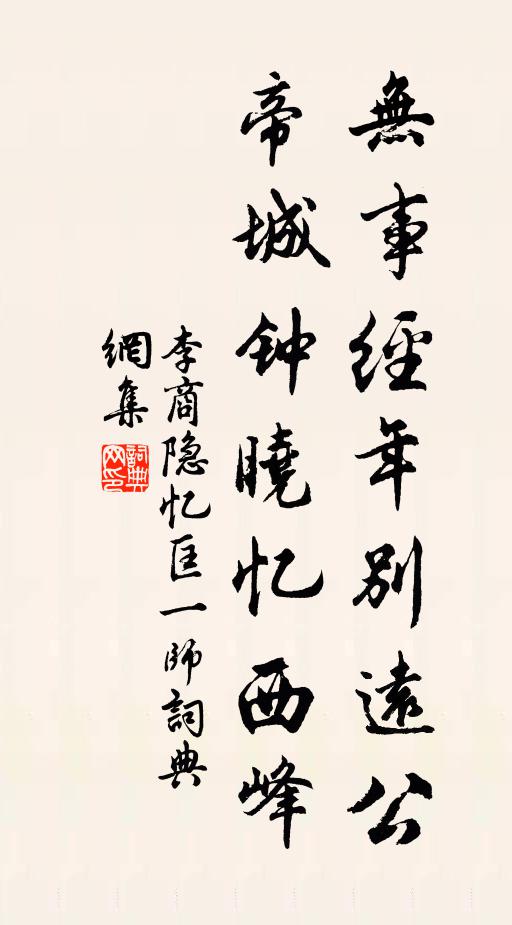 無事經年別遠公
帝城钟曉忆西峰
李商隐忆匡一師詞典
網集
詞典
网印